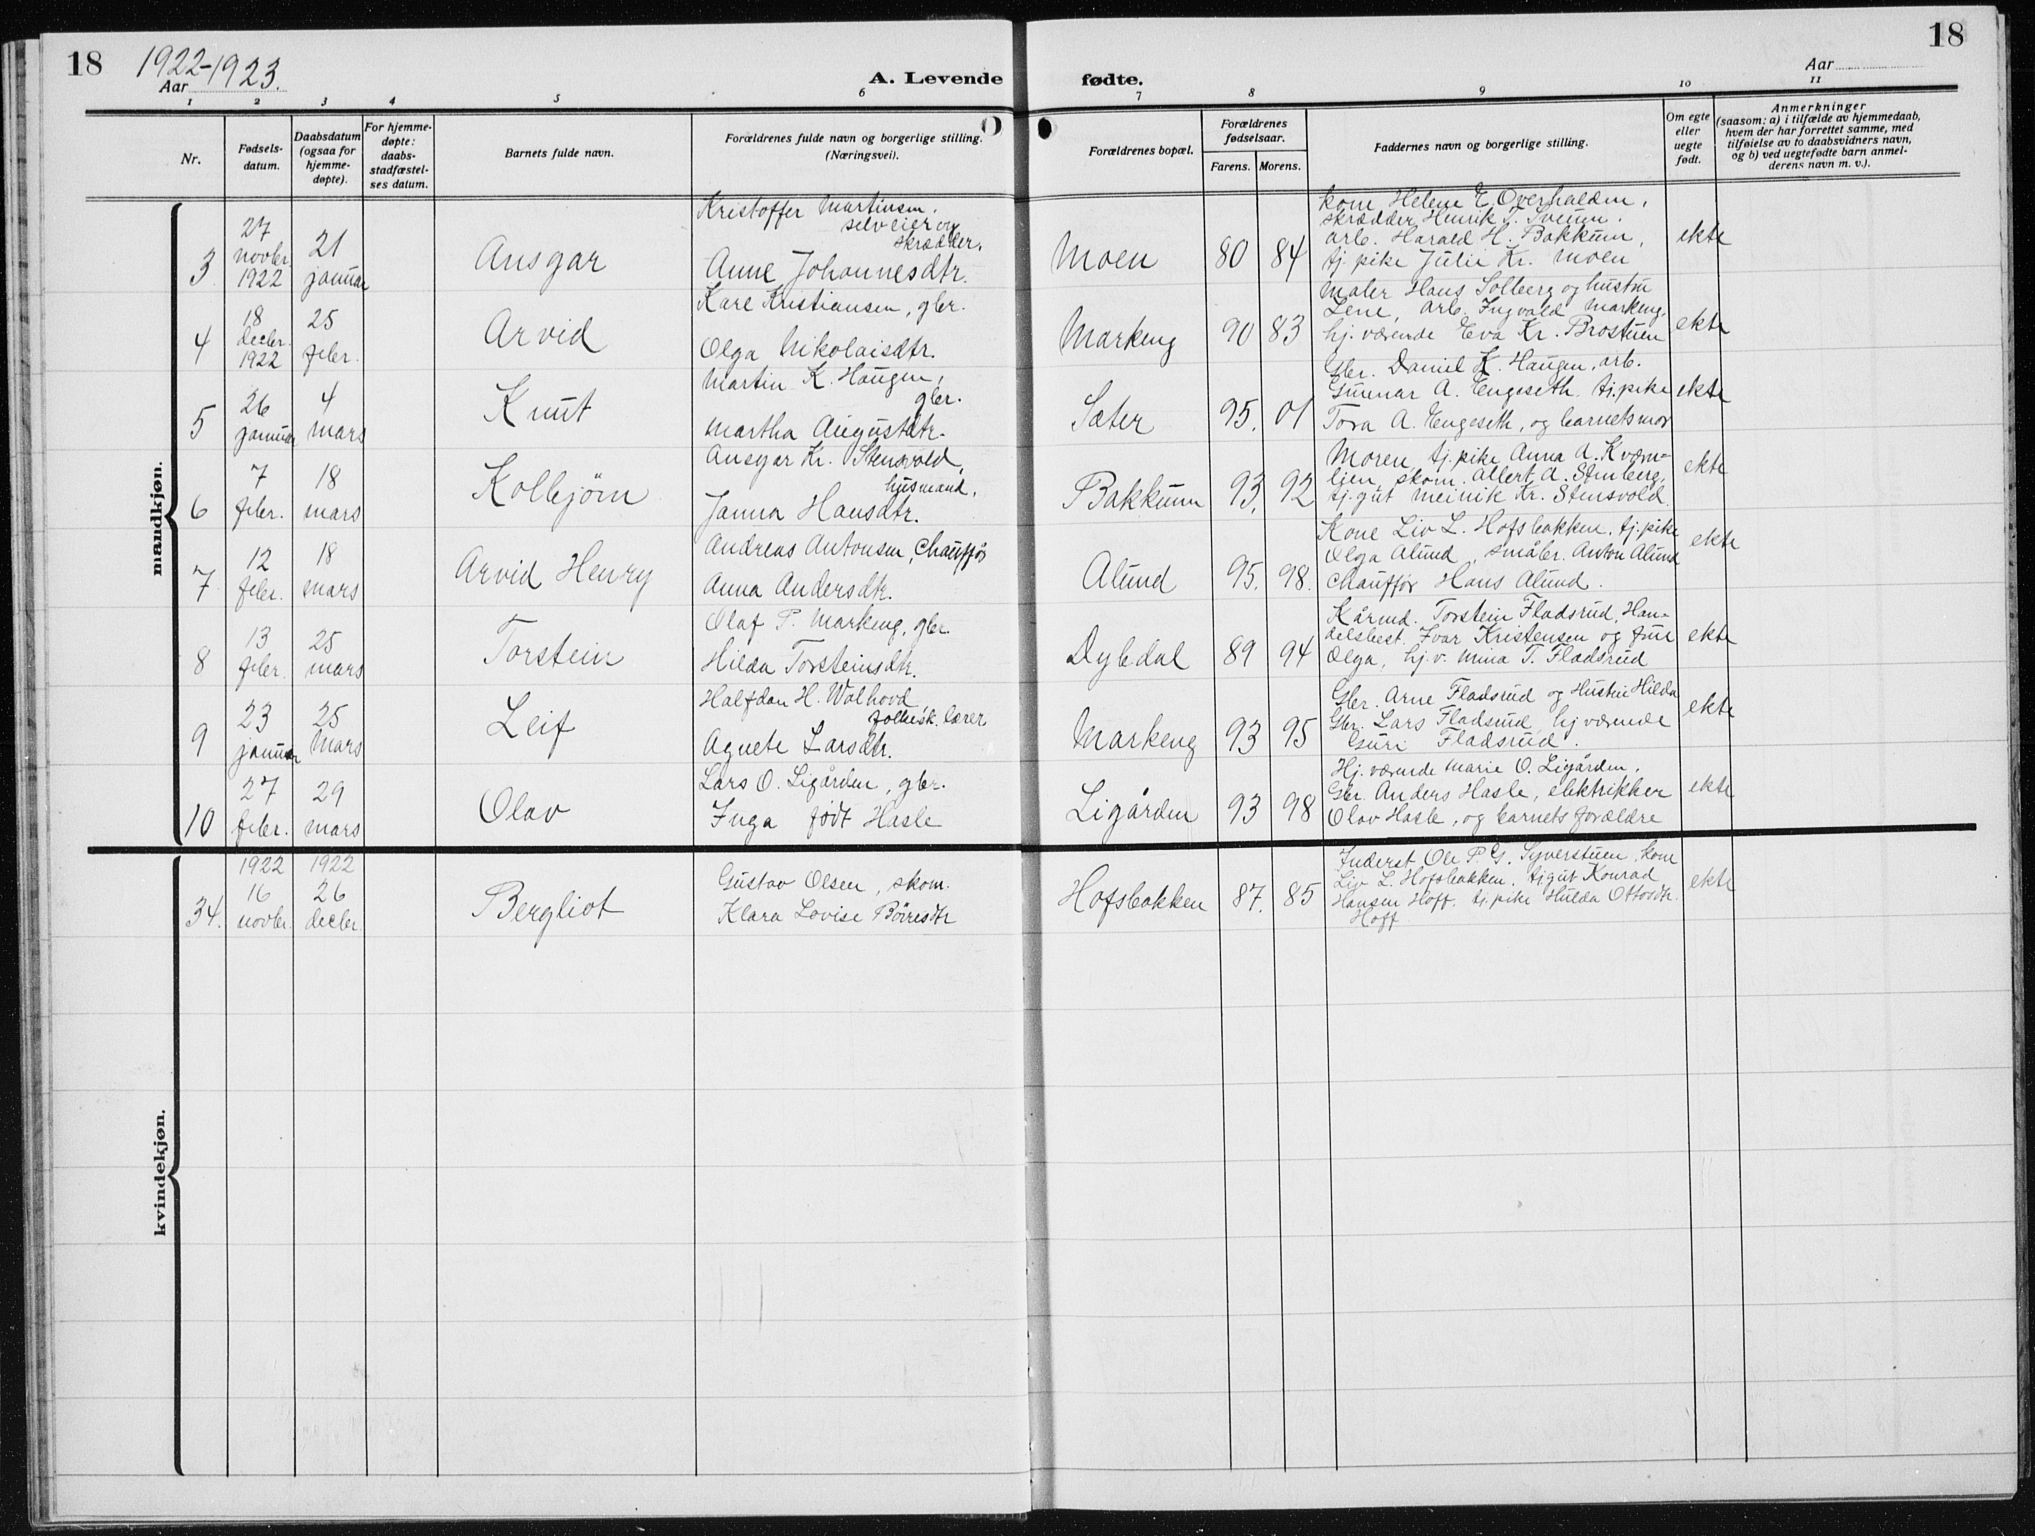 18
1922-1923.
Aar
A. Levende
fødte.
Aar
18
1 2 3 4 5 6 7 8 9 10 11
Nr.
Fødsels-
datum.
Daabsdatum
(ogsaa for
hjemme-
døpte).
For hjemme-
døpte:
daabs-
stadfæstel-
ses datum.
Barnets fulde navn.
Forældrenes fulde navn og borgerlige stilling.
(Næringsvei).
Forældrenes bopæl.
Forældrenes
fødselsaar.
Farens. Morens.
Faddernes navn og borgerlige stilling.
Om egte
eller
uegte
født.
Anmerkninger
(saasom: a) i tilfælde av hjemmedaab,
hvem der har forrettet samme, med
tilføielse av to daabsvidners navn,
og b) ved uegtefødte barn anmel-
derens navn m. v.).
mandkjøn.
3
27
novbr
1922
21
januar
Ansgar
Kristoffer Martinsen,
selveier og
skrædder,
Anne Johannesdtr.
Moen
80 84
kone Helene E. Overhalden,
skrædder Henrik T. Sveen,
arb. Harald H. Bakkum,
tj. pike Julie Kr. Moen
ekte
4
18
decbr.
1922
25
febr.
Arvid
Kare Kristiansen, gbr.
Olga Nikolaisdtr.
Markeng
90 83
Maler Hans Solberg og hustru
Lene, arb. Ingvald Markeng,
hj. værende Eva Kr. Brostuen
ekte
5
26
januar
4
mars
Knut
Martin K. Haugen,
gbr.
Martha Augustdtr.
Sæter
95. 01
Gbr. Daniel K. Haugen, arb.
Gunnar A. Engeseth. tj. pike
Tora A. Engeseth, og barnets mor
ekte
6
7
febr.
18
mars
Kolbjørn
Ansgar Kr. Stensvold,
husmand,
Janna Hansdtr.
Bakkum
93. 92
Moren, tj. pike Anna A. Kværn-
lien, skom. Albert A. Stenberg,
tj. gut Meinik Kr. Stensvold.
ekte
7
12
febr.
18
mars
Arvid Henry
Andreas Antonsen, Chauffør
Anna Andersdtr.
Alund
95. 98.
Kone Liv L. Hofsbakken, tj. pike
Olga Alund, småbr. Anton Alund
Chauffør Hans Alund.
ekte
8
13
febr.
25
mars
Torstein
Olaf P. Markeng, gbr.
Hilda Torsteinsdtr.
Dybdal
89 94
Kårmd. Torstein Fladsrud, Han-
delsbest. Ivar Kristensen og frue
Olga, hj. v. Mina T. Fladsrud
ekte
9
23
januar
25
Mars
Leif
Halfdan H. Walhovd
folkesk. lærer
Agnete Larsdtr.
Markeng
93 95
Gbr. Arne Fladsrud og Hustru Hilda
Gbr. Lars Fladsrud, hj værende
Guri Fladsrud.
ekte
10
27
febr.
29
mars
Olav
Lars O. Ligården, gbr.
Inga født Hasle
Ligården
93 98
Hj. værende Marie O. Ligården.
Gbr. Anders Hasle, elektrikker
Olav Hasle, og barnets forældre
ekte
kvindekjøn.
34.
1922
16
novbr.
1922
26
decbr.
Bergliot
Gustav Olsen, skom.
Klara Lovise Børresdtr
Hofsbakken
87. 85
Inderst Ole P. G. Syverstuen, kone
Liv L. Hofsbakken, tj gut Konrad
Hansen Hoff. tj. pike Hulda Ottosdtr.
Hoff
ekte